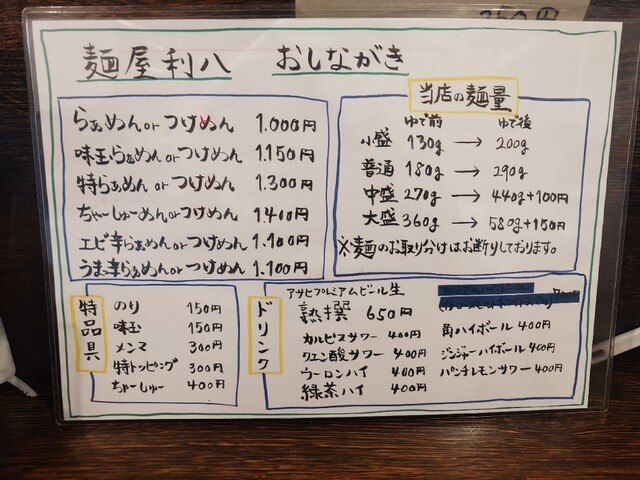 250円
麺屋利八 おしながき
らぁめんorつけめん 1.000円
味玉らぁめんorつけめん 1.150円
特らぁめんorつけめん 1.300円
ちゃーしゅーめんorつけめん 1.400円
エビ辛らぁめんorつけめん 1.100円
うま辛らぁめんorつけめん 1.100円
当店の麺量
ゆで前 ゆで後
小盛 130g → 200g
普通 180g → 290g
中盛 270g → 440g+100円
大盛 360g → 580g+150円
※麺のお取り分けはお断りしております。
特品具
のり 150円
味玉 150円
メンマ 300円
特トッピング 300円
ちゃーしゅー 400円
ドリンク
アサヒプレミアムビール生
熟撰 650円
カルピスサワー 400円
クエン酸サワー 400円
ウーロンハイ 400円
緑茶ハイ 400円
角ハイボール 400円
ジンジャーハイボール 400円
パンチレモンサワー 400円